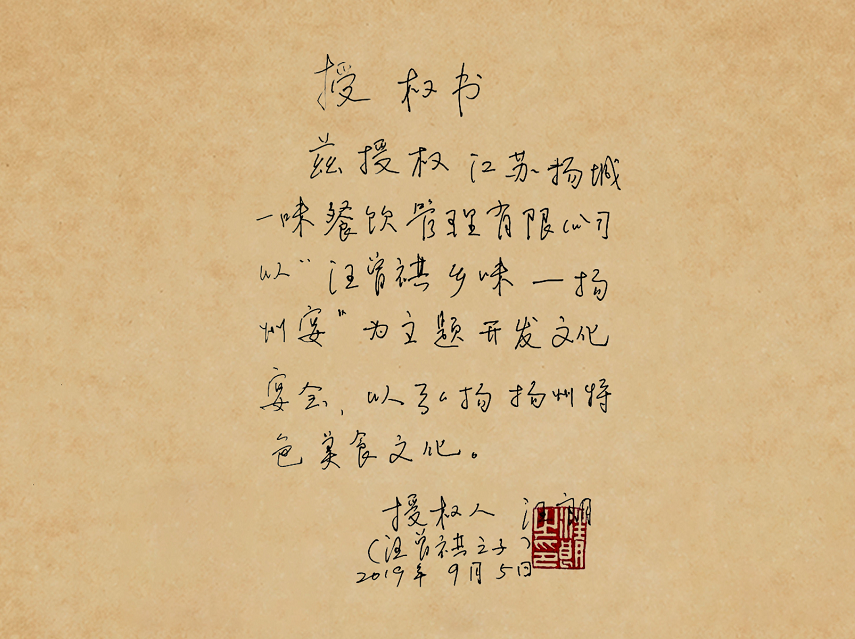 授权书
兹授权江苏扬城
一味餐饮管理有限公司
以“汪曾祺乡味—扬
州宴”为主题开发文化
宴会,以弘扬扬州特
色美食文化。
授权人 汪朗
(汪曾祺之子)
2019年9月5日
汪朗之印